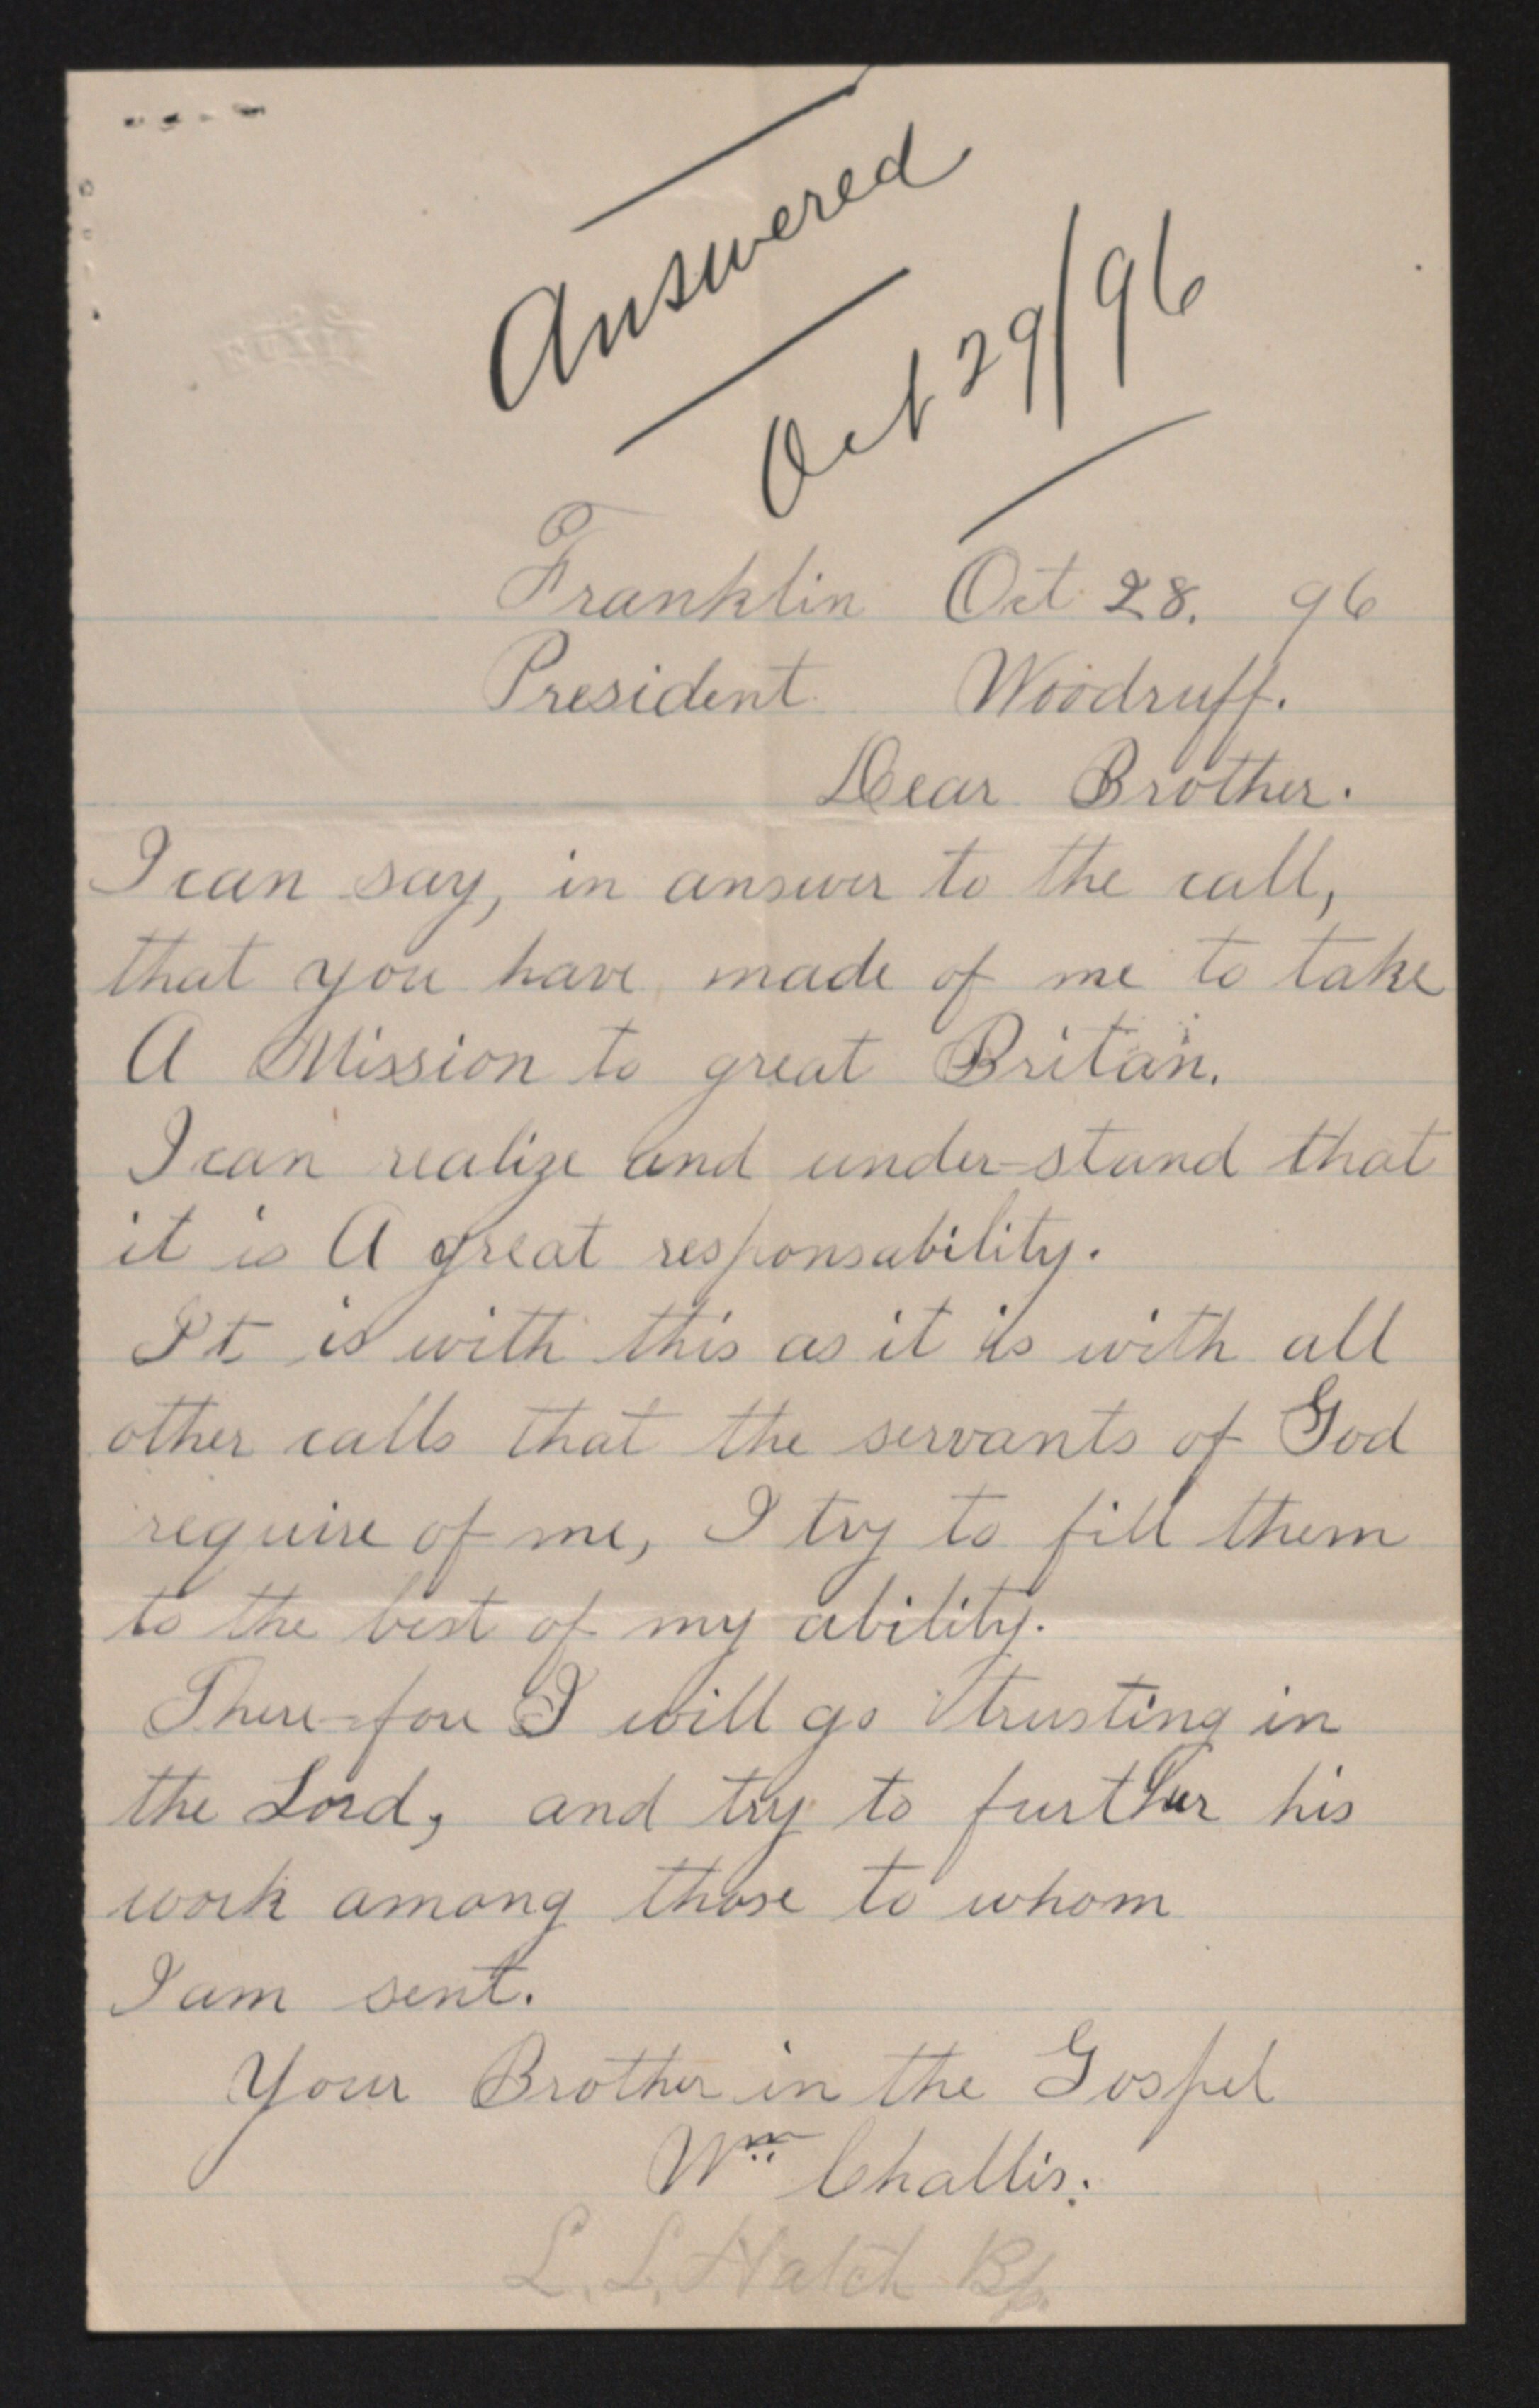 Answered
Oct 29/96
Franklin Oct 28. 96
President Woodruff.
Dear Brother.
I can say, in answer to the call,
that you have made of me to take
A Mission to great Britan.
I can realize and under-stand that
it is A great responsability.
It is with this as it is with all
other calls that the servants of God
require of me, I try to fill them
to the best of my ability.
There-fore I will go trusting in
the Lord, and try to further his
work among those to whom
I am sent.
Your Brother in the Gospel
Wm Challis.
L. L. Hatch Bp.